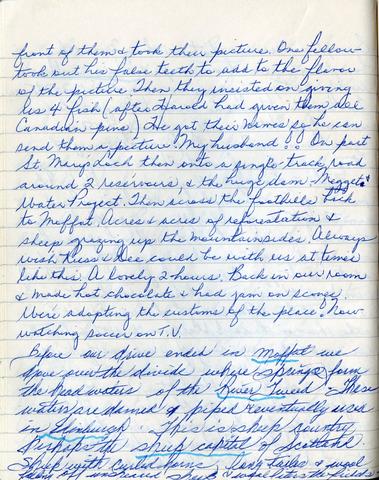 front of them & took their picture. One fellow
took out his false teeth to add to the flavor
of the picture. Then they insisted on giving
us 4 fish (after Harold had given them all
Canadian pins) He got their names so he can
send them a picture. My husband!! On past
St. Mary's Loch then onto a single track road
around 2 reservoirs, & the huge dam. Megget
Water Project. Then across the foothills back
to Moffat. Acres & acres of reforestation &
sheep grazing up the mountainsides. Always
wish Russ & Dee could be with us at times
like this. A lovely 2 hours. Back in our room
& made hot chocolate & had jam on scones.
We're adopting the customs of the place. Now
watching soccer on T.V.
Before our drive ended in Moffat we
drove over the divide where springs form
the head waters of the River Tweed. These
waters are dammed & piped & eventually used
in Edinburgh. This is sheep country
Perhaps the sheep capital of Scotland.
Sheep with curled horns, long tailed & wool